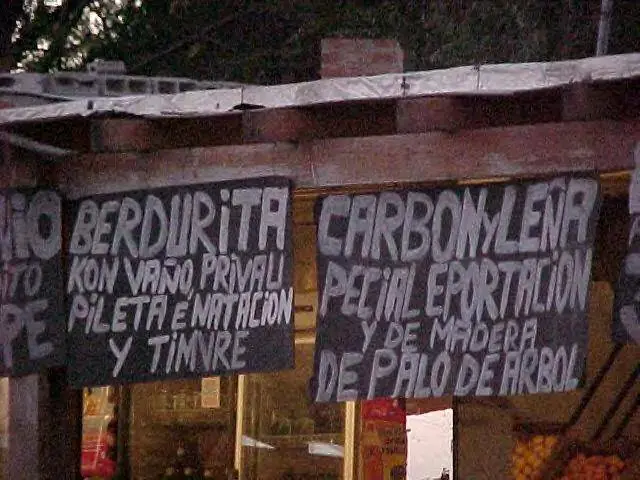 BERDURiTA
KON VAÑO, PRiVALI
PiLETA É NATACiON
Y TiMVRE
CARBON Y LEÑA
PECiAL EPORTACiON
Y DE MADERA
DE PALO DE ARBOL